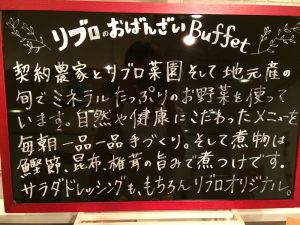 リブロのおばんざいBuffet
契約農家とリブロ菜園そして地元産の
旬でミネラルたっぷりのお野菜を使って
います。自然や健康にこだわったメニューを
毎朝一品一品手づくり。そして煮物は
鰹節、昆布、椎茸の旨みで煮つけです。
サラダドレッシングも、もちろんリブロオリジナル。